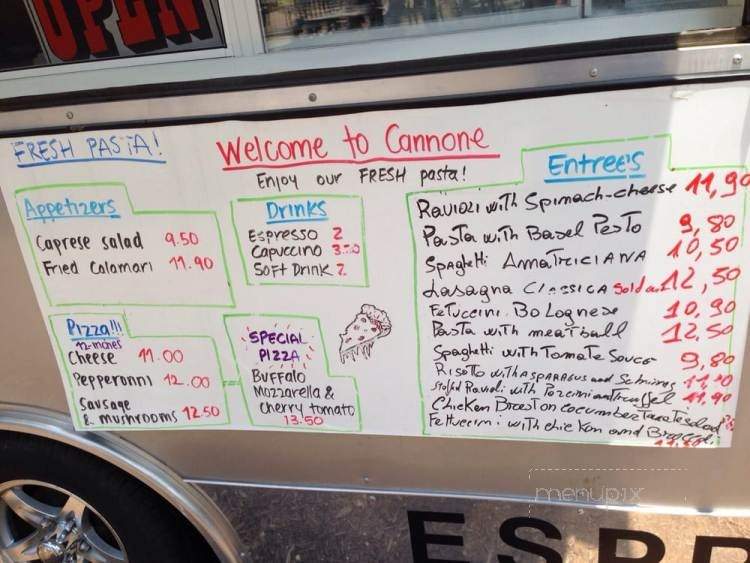 OPEN
FRESH PASTA!
Welcome to Cannone
Enjoy our FRESH pasta!
Appetizers
Caprese salad 9.50
Fried Calamari 11.90
Drinks
Espresso 2
Capuccino 3.50
Soft Drink 2
Pizza!!!
12-inches
Cheese 11.00
Pepperonni 12.00
Sausage
& mushrooms 12.50
SPECIAL
PIZZA
Buffalo
Mozzarella &
Cherry tomato
13.50
Entree's
Ravioli with Spinach-cheese 11,90
Pasta with Basel Pesto 9,80
Spaghetti AmATRICIANA 10,50
Lasagna Classica Sold out 12,50
Fetuccini Bolognese 10,90
Pasta with meatball 12,50
Spaghetti with Tomate Sauce 9,80
Risotto with ASPARAGUS and Schrimps 11,90
Stoffd Ravioli with Porcini and Truffel 11,90
Chicken Breast on cocumber Tomate Salad
Fettuccini with chicken and Broccoli
menupix
ESPR